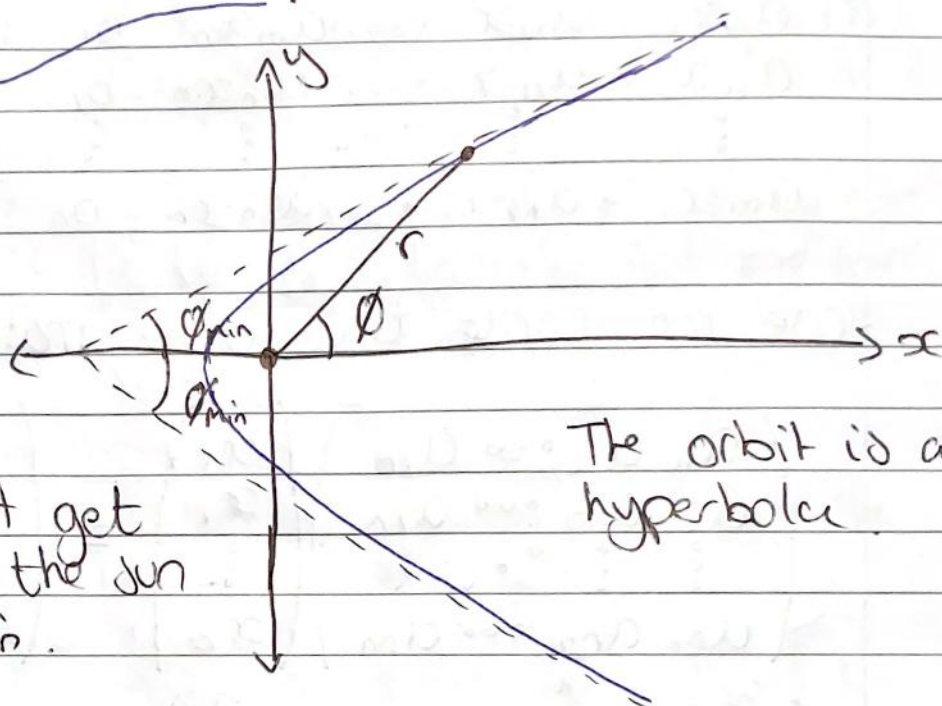 y
r
ϕmin
ϕ
x
ϕmin
The orbit is a
hyperbola.
get
the sun